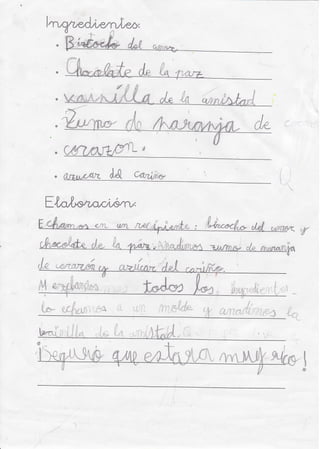 Ingredientes:
. Biscocho del amor
. Chocolate de la paz
. vainilla de la amistad
. Zumo de naranja de
. corazon.
. azucar del cariño
Elaboración:
Echamos en un recipiente: bincocho del amor y
chocolate de la paz. Añadimos zumo de naranja
de corazón y azúcar del cariño.
Mezclamos todos los ingredientes
lo echamos a un molde y anadimos la
vainilla de la amistad.
¡Seguro que estara muy rico!